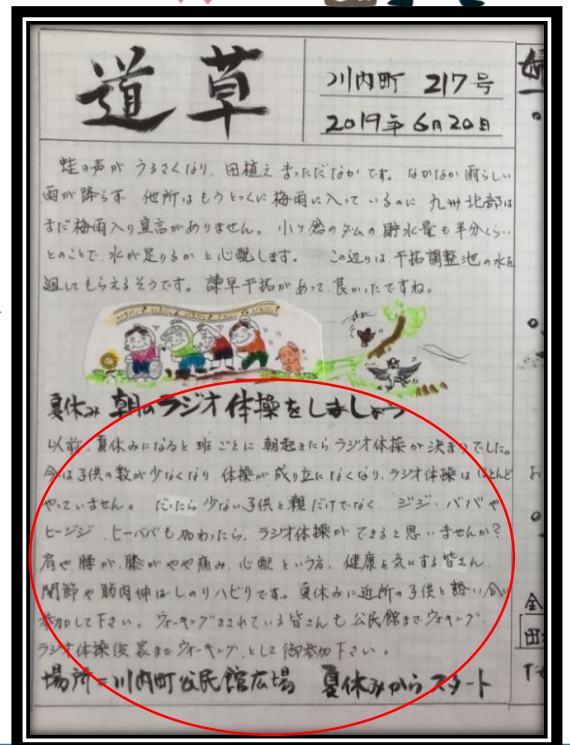 道草
川内町 217号
2019年6月20日
蛙の声が うるさくなり、田植え まっただなか です。なかなか 雨らしい
雨が降らず 他所はもうとっくに梅雨に入っているのに 九州北部は
まだ梅雨入り宣言がありません。小ヶ倉のダムの貯水量も半分くらい
とのことで、水が足りるか と心配します。 この辺りは 干拓調整池の水を
廻してもらえるそうです。諫早干拓があって、良かったですね。
夏休み 朝のラジオ体操をしましょう
以前、夏休みになると 班ごとに 朝起きたら ラジオ体操 が 決まりでした。
今は子供の数が少なくなり 体操が成り立たなくなり、ラジオ体操は ほとんど
やっていません。 だったら 少ない子供と親だけでなく、ジジ・ババや
ヒージジ、ヒーババも加わったら、ラジオ体操が できると思いませんか?
肩や 腰が、膝が やや痛み、心配 という方、健康を気にする皆さん、
関節や筋肉伸ばしのリハビリです。夏休みに近所の子供と誘い合い
参加して下さい。ウォーキングされている皆さんも 公民館までウォーキング、
ラジオ体操後 家までウォーキング、として 御参加下さい。
場所=川内町公民館広場 夏休みからスタート
婦
全
田